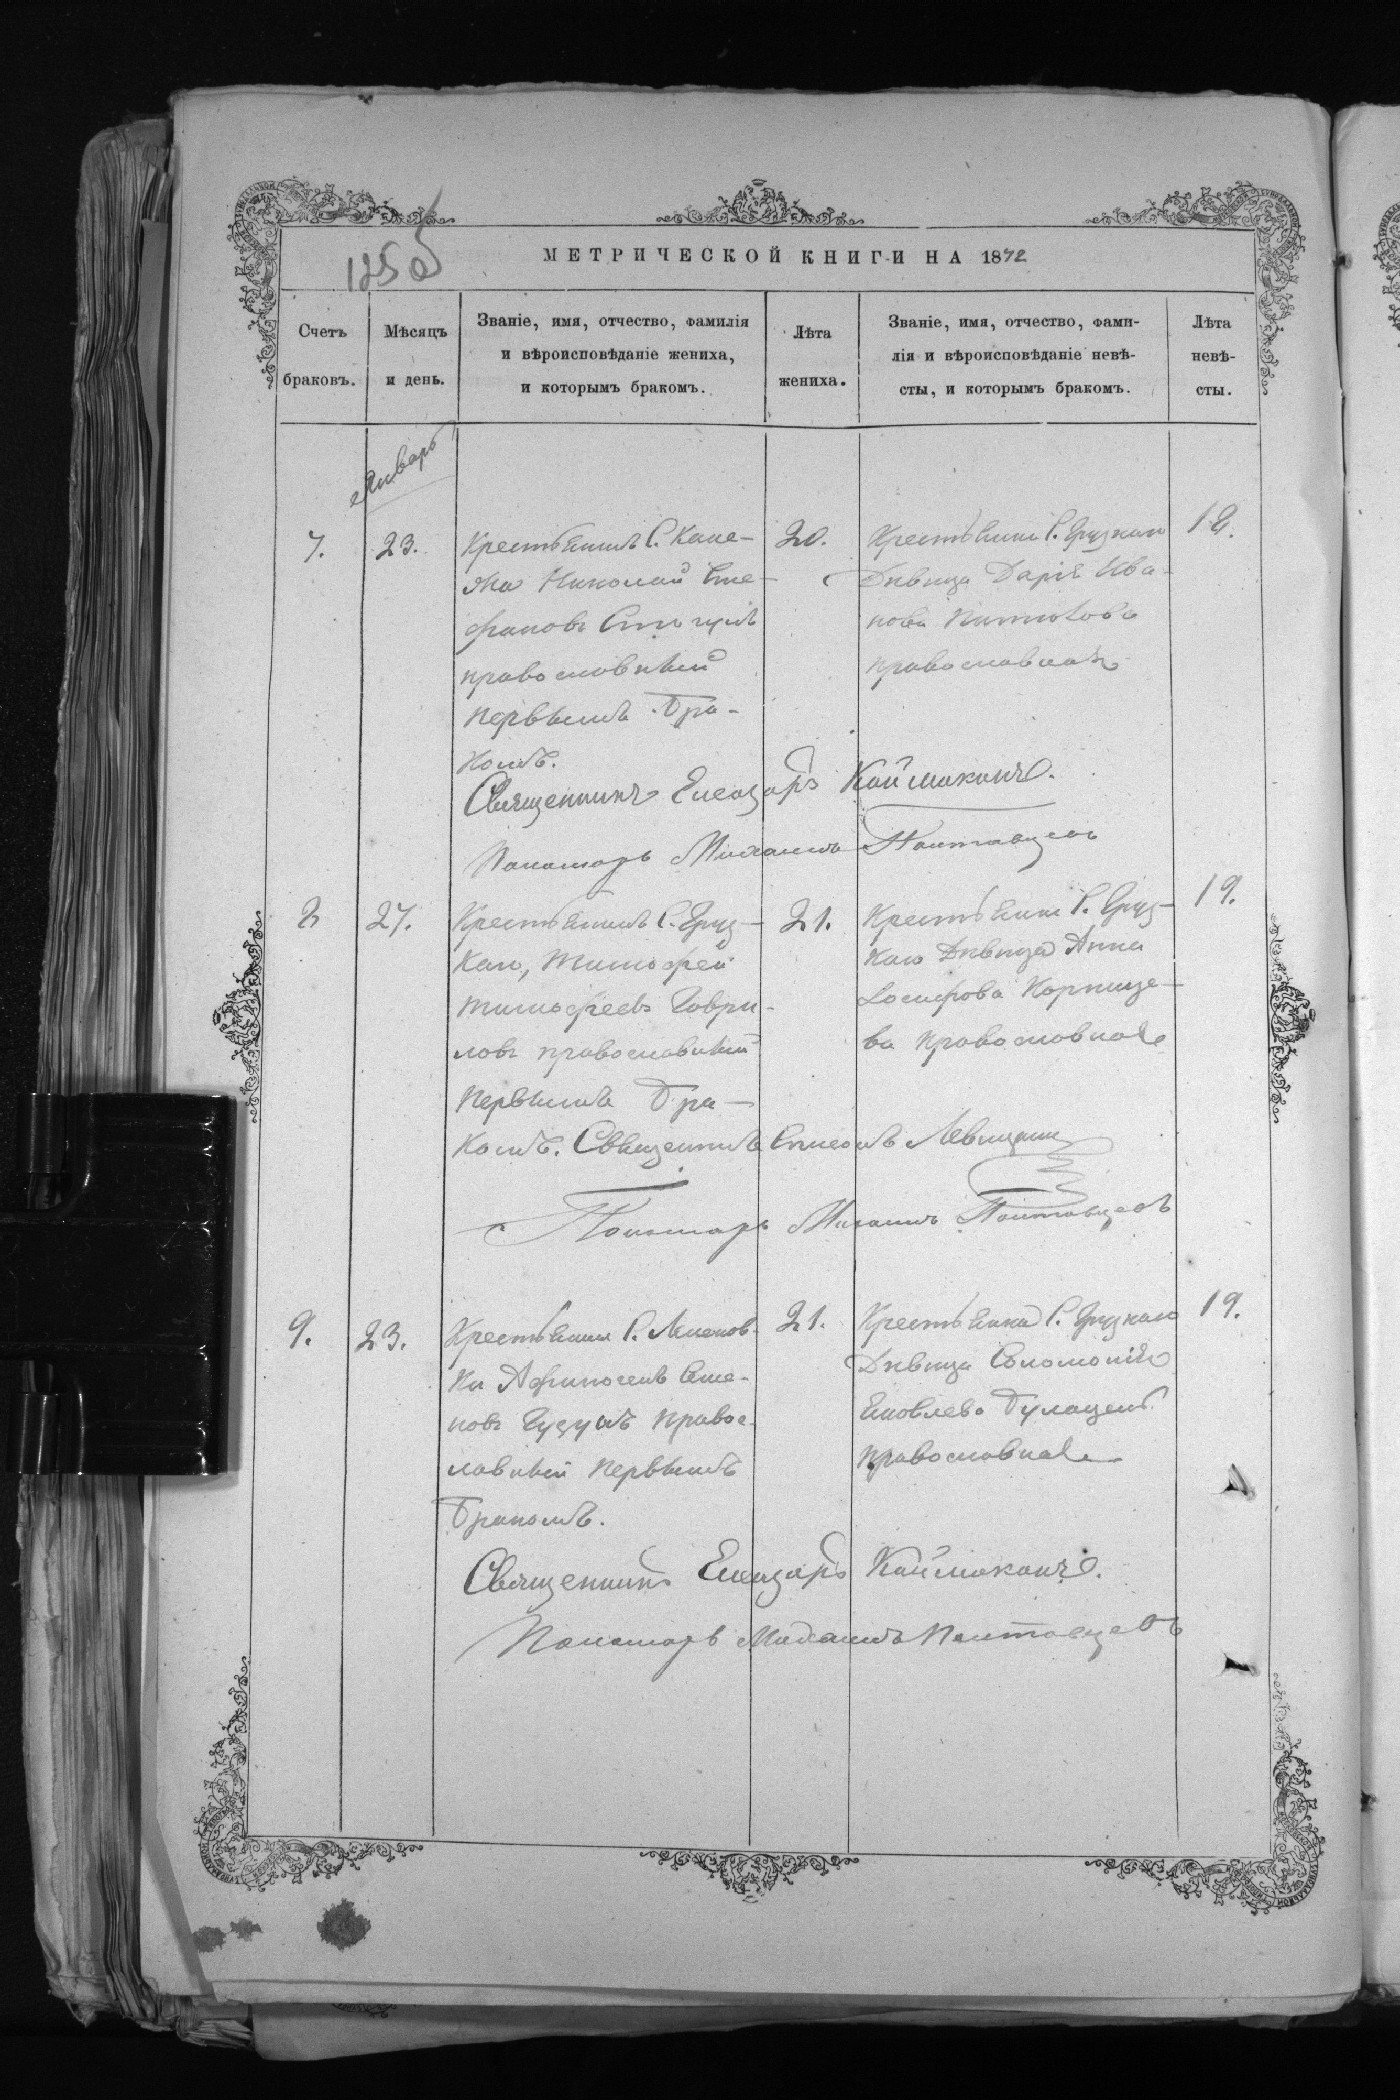 МЕТРИЧЕСКОЙ КНИГИ НА 1872
Счетъ браковъ.
Мѣсяцъ и день.
Званіе, имя, отчество, фамилія
и вѣроисповѣданіе жениха,
и которымъ бракомъ.
Лѣта жениха.
Званіе, имя, отчество, фами-
лія и вѣроисповѣданіе невѣ-
сты, и которымъ бракомъ.
Лѣта невѣ-
сты.
Январь
7. 23.
Крестьянинъ С. Каме-
нка Николай Сте-
фановъ
православный
первымъ бра-
комъ.
20.
Крестьянка С. Грузкаго
Дѣвица Дарія Ива-
нова
православная
18.
Священникъ Елеазаръ Каймаканъ.
Пономарь Михаилъ Полтавцевъ
8 27.
Крестьянинъ С. Груз-
каго, Тимофей
Тимофеевъ Гаври-
ловъ православный
первымъ бра-
комъ.
21.
Крестьянка С. Груз-
каго Дѣвица Анна
Іосифова
ва православная
19.
Священникъ Симеонъ Левицкій
Пономарь Михаилъ Полтавцевъ
9. 23.
Крестьянинъ С.
Сте-
новъ правос-
лавный первымъ
бракомъ.
21.
Крестьянка С. Грузкаго
Дѣвица Соломонія
Яковлева
православная
19.
Священникъ Елеазаръ Каймаканъ.
Пономарь Михаилъ Полтавцевъ